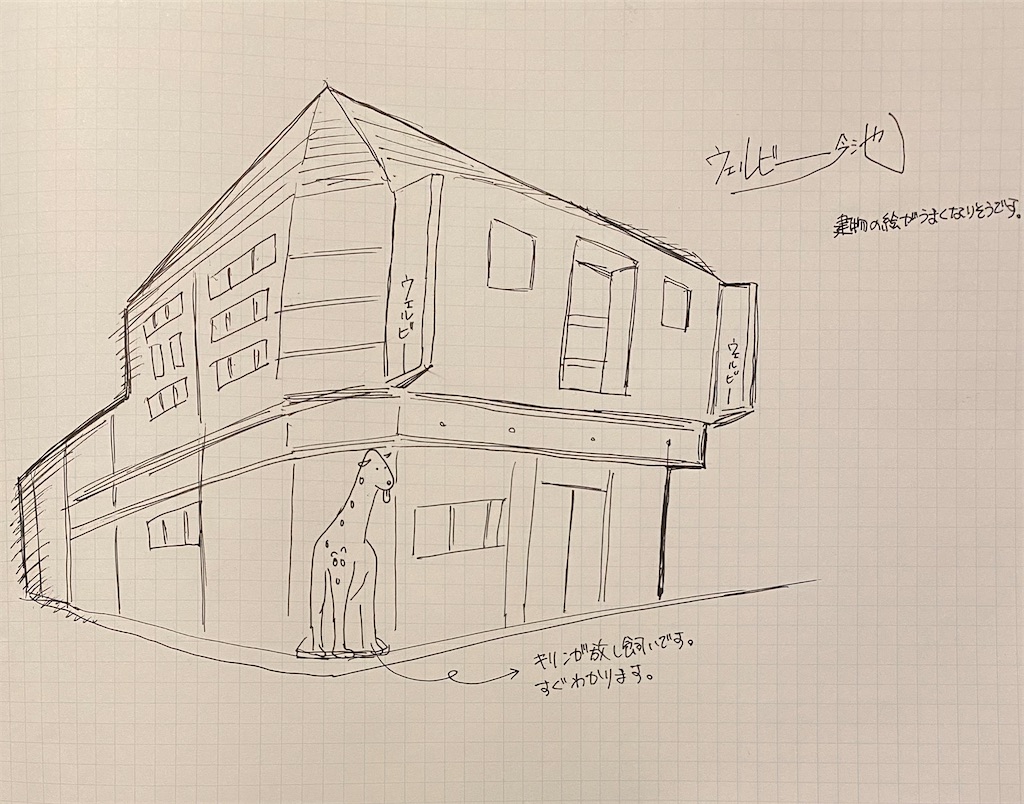 ウェルビー今池
建物の絵がうまくなりそうです。
ウェルビー
ウェルビー
キリンが放し飼いです。
すぐわかります。